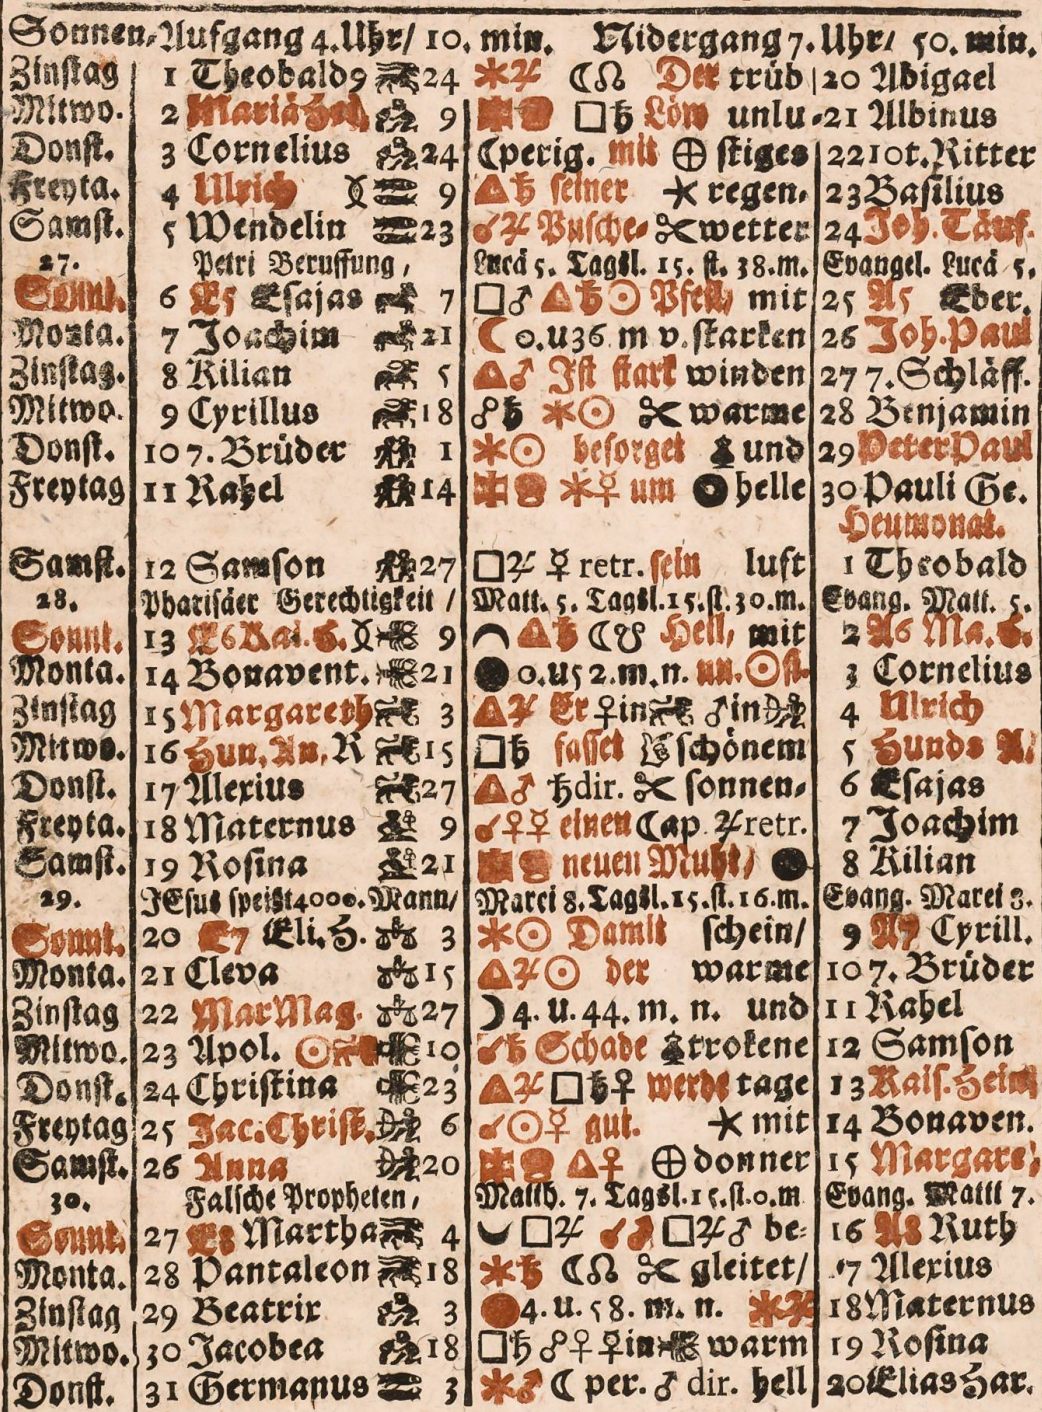 Sonnen-Aufgang 4. Uhr/ 10. min. Nidergang 7. Uhr/ 50. min.
Zinstag 1 Theobald 9 24 ✶♃ ☾☊ Der trüb 20 Abigael
Mitwo. 2 Mariä 9 □♄ Löw unlu- 21 Albinus
Donst. 3 Cornelius 24 ☾perig. mit ⊕ stiges 22 10t. Ritter
Freyta. 4 Ulrich 9 △♄ seiner ✶ regen- 23 Basilius
Samst. 5 Wendelin 23 ☌♃ Pusche- ✂ wetter 24 Joh. Täuf.
27. Petri Beruffung, Lucä 5. Tagsl. 15. st. 38. m. Evangel. Lucä 5.
Sonnt. 6 E5 Esajas 7 □♂ △♄☉ Pfeil, mit 25 A5 Eber.
Monta. 7 Joachim 21 ☾ 0. u 36 m v. starken 26 Joh. Paul
Zinstag. 8 Kilian 5 △♂ Ist stark winden 27 7. Schläff.
Mitwo. 9 Cyrillus 18 ☍♄ ✶☉ ✂ warme 28 Benjamin
Donst. 10 7. Brüder 1 ✶☉ besorget und 29 Peter Paul
Freytag 11 Rahel 14 ✶☿ um helle 30 Pauli Ge.
Heumonat.
Samst. 12 Samson 27 □♃ ☿ retr. sein luft 1 Theobald
28. Pharisäer Gerechtigkeit / Matt. 5. Tagsl. 15. st. 30. m. Evang. Matt. 5.
Sonnt. 13 E6 Kai. H. 9 △♄ ☾☋ Hell, mit 2 A6 Ma. H.
Monta. 14 Bonavent. 21 ● 0. u 52. m. n. un. ☉ 3 Cornelius
Zinstag 15 Margareth 3 △♃ Er ♀ in ♂ in 4 Ulrich
Mitwo. 16 Hun. An. R 15 □♄ fasset schönem 5 Hunds A.
Donst. 17 Alexius 27 △♂ ♄ dir. ✂ sonnen- 6 Esajas
Freyta. 18 Maternus 9 ☌♀☿ einen ☾ap. ♃ retr. 7 Joachim
Samst. 19 Rosina 21 neuen Muht/ 8 Kilian
29. JEsus speist 4000. Mann/ Marci 8. Tagsl. 15. st. 16. m. Evang. Marci 8.
Sonnt. 20 E7 Eli. H. 3 ✶☉ Damit schein/ 9 A7 Cyrill.
Monta. 21 Cleva 15 △♃☉ der warme 10 7. Brüder
Zinstag 22 Mar Mag. 27 ☽ 4. u. 44. m. n. und 11 Rahel
Mitwo. 23 Apol. ☉ 10 ☌♄ Schade trokene 12 Samson
Donst. 24 Christina 23 △♃ □♄♀ werde tage 13 Kais. Hein
Freytag 25 Jac. Christ. 6 ☌☉☿ gut. ✶ mit 14 Bonaven.
Samst. 26 Anna 20 △♀ ⊕ donner 15 Margare,
30. Falsche Propheten, Matth. 7. Tagsl. 15. st. 0. m Evang. Matt 7.
Sonnt. 27 E8 Martha 4 □♃ ☌♂ □♃♂ be- 16 A8 Ruth
Monta. 28 Pantaleon 18 ✶♄ ☾☊ ✂ gleitet/ 17 Alexius
Zinstag 29 Beatrix 3 4. u. 58. m. n. ✶♃ 18 Maternus
Mitwo. 30 Jacobea 18 □♄ ☍♀ ♀ in warm 19 Rosina
Donst. 31 Germanus 3 ✶♂ ☾ per. ♂ dir. hell 20 Elias Har.